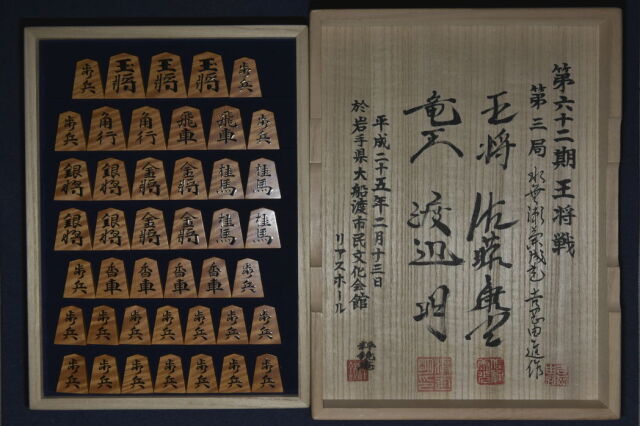 歩兵 玉将 王将 王将 歩兵
歩兵 角行 角行 飛車 飛車 歩兵
銀将 銀将 金将 金将 桂馬 桂馬
銀将 銀将 金将 金将 桂馬 桂馬
歩兵 香車 香車 香車 香車 歩兵
歩兵 歩兵 歩兵 歩兵 歩兵 歩兵 歩兵
歩兵 歩兵 歩兵 歩兵 歩兵 歩兵 歩兵
第六十二期王将戦
第三局 水無瀬兼成
王将 佐藤康光
竜王 渡辺明
平成二十五年二月十三日
於岩手県大船渡市民文化会館
リアスホール